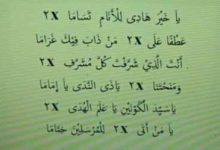 يَا خَيْرَ هَادِى لِلْأَنَامِ تَسَامَا ٢X
عَطْفًا عَلَى ٢X مَنْ ذَابَ فِيْكَ غَرَامَا
أَنْتَ الَّذِيْ شَرَّفْتَ كُلَّ مُشَرَّفٍ ٢X
وَمَنَحْتَنَا ٢X يَاذَى النَّدَى يَا إِمَامَا
يَا سَيِّدَ الْكَوْنَيْنِ يَا عَلَمَ الْهُدَى ٢X
يَا مَنْ أَتَى ٢X لِلْمُرْسَلِيْنَ خِتَامَا